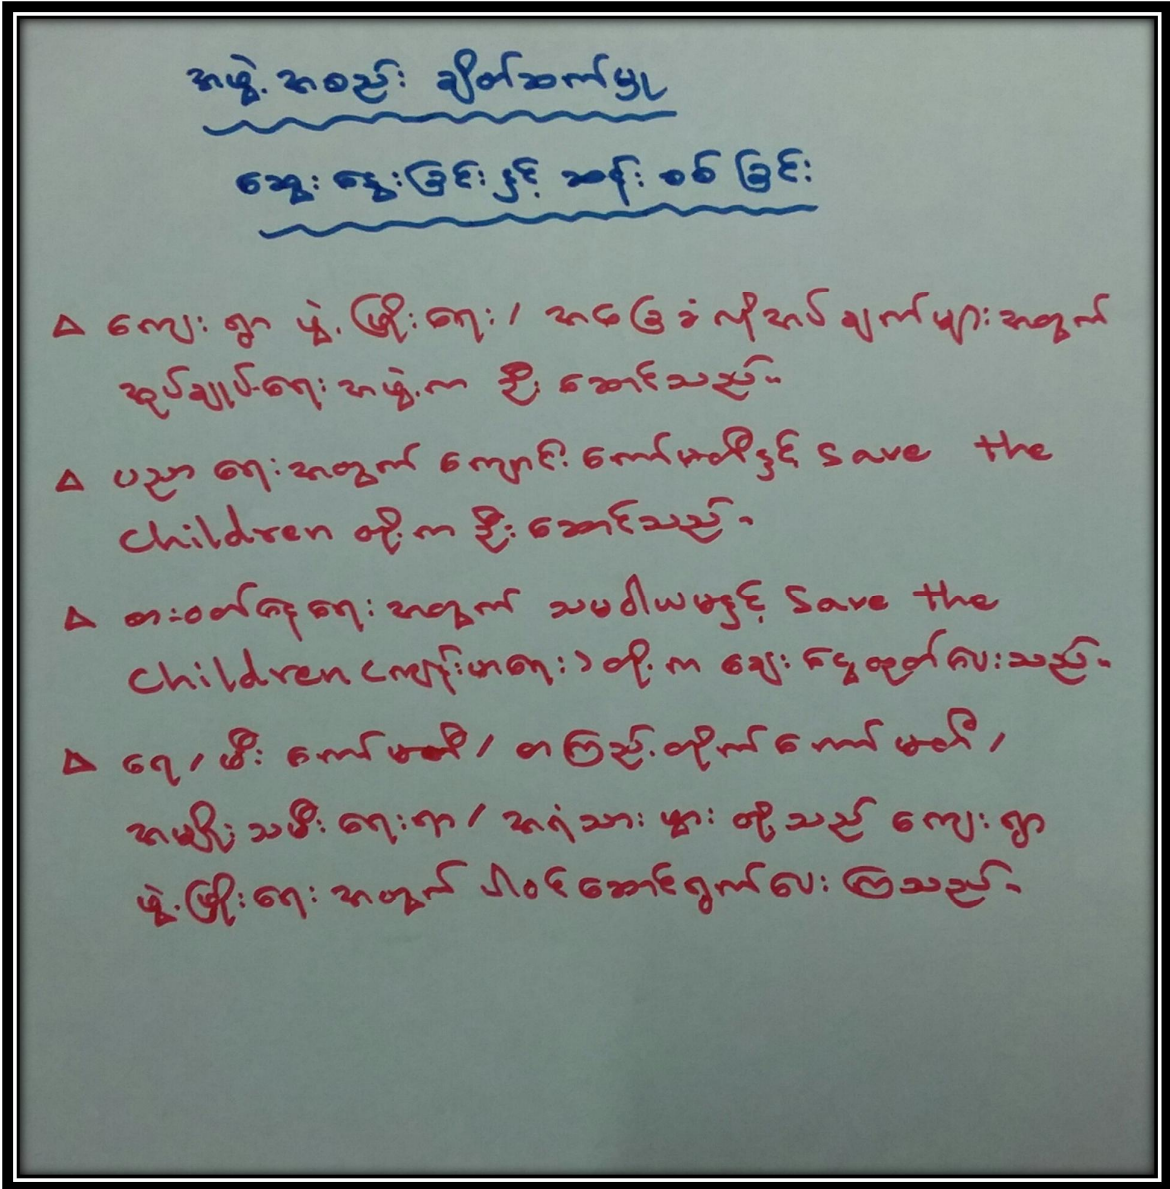 အဖွဲ့အစည်း ချိတ်ဆက်မှု
ဆွေးနွေးခြင်းနှင့် ဆန်းစစ်ခြင်း
∆ ကျေးရွာ ဖွံ့ဖြိုးရေး/ အခြေခံလိုအပ်ချက်များအတွက်
အုပ်ချုပ်ရေးအဖွဲ့က ဦးဆောင်သည်။
∆ ပညာရေးအတွက် ကျောင်းကော်မတီနှင့် Save the
Children တို့က ဦးဆောင်သည်။
∆ စားဝတ်နေရေးအတွက် သမဝါယမနှင့် Save the
Children (ကျန်းမာရေး) တို့က ချေးငွေထုတ်ပေးသည်။
∆ ရေ/မီး ကော်မတီ/ တကြည့်တိုက်ကော်မတီ/
အမျိုးသမီးရေးရာ/ အရံသားများ တို့သည် ကျေးရွာ
ဖွံ့ဖြိုးရေးအတွက် ပါဝင်ဆောင်ရွက်ပေးကြသည်။